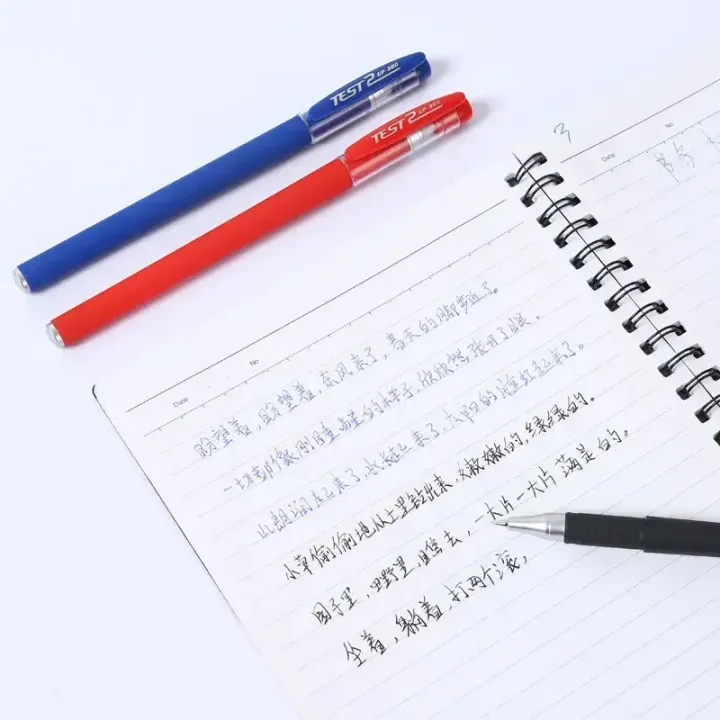 TEST 2 GP-380
TEST 2 GP-380
3
Date
No
Date
No
盼望着,盼望着,东风来了,春天的脚步近了。
一切都像刚睡醒的样子,欣欣然张开了眼。
山朗润起来了,水涨起来了,太阳的脸红起来了。
小草偷偷地从土里钻出来,嫩嫩的,绿绿的。
园子里,田野里,瞧去,一大片一大片满是的。
坐着,躺着,打两个滚,